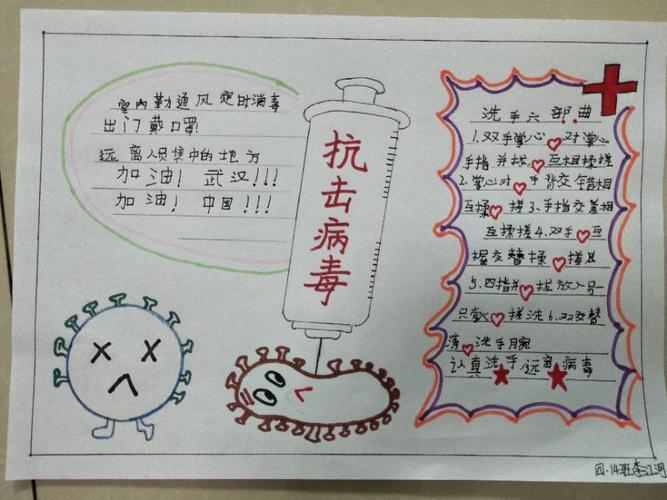 室内勤通风定时消毒
出门戴口罩
远离人员集中的地方
加油！武汉！！！
加油！中国！！！
抗击病毒
洗手六部曲
1.双手掌心对掌心
手指并拢互相揉搓
2.掌心对手背交错相
互揉搓3.手指交差相
互揉搓4.双手互
握交替揉搓
5.四指并拢放入另
只掌心搓洗6.双交替
清洗手腕
认真洗手远离病毒
四.14班